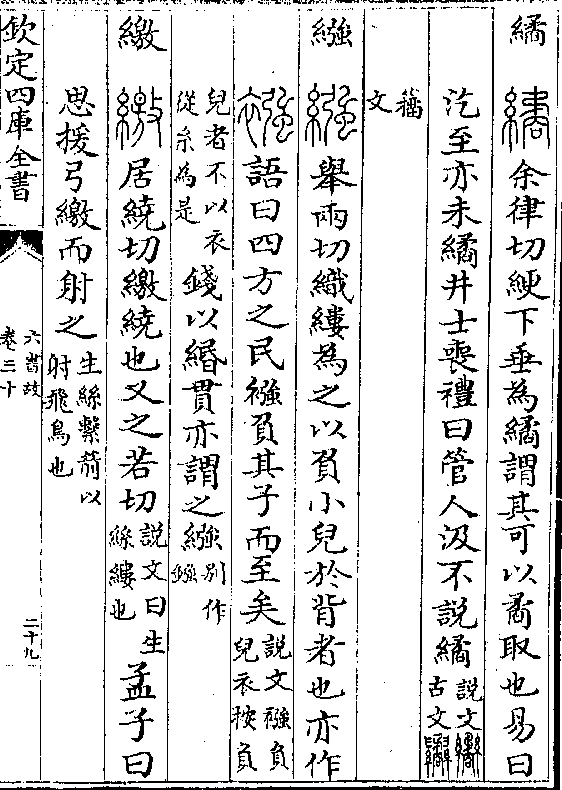 繘 繘余律切綆下垂為繘謂其可以矞取也易曰
汔至亦未繘井士喪禮曰管人汲不說繘說文古文
籒文
繈 繈舉兩切織縷為之以負小兒於背者也亦作
襁語曰四方之民襁負其子而至矣說文襁負兒衣按負
兒者不以衣從糸為是錢以緡貫亦謂之繈別作鏹
繳 繳居繞切繳繞也又之若切說文曰生絲縷也孟子曰
思援弓繳而射之生絲繫箭以射飛鳥也
欽定四庫全書
六書故
卷三十
二十九